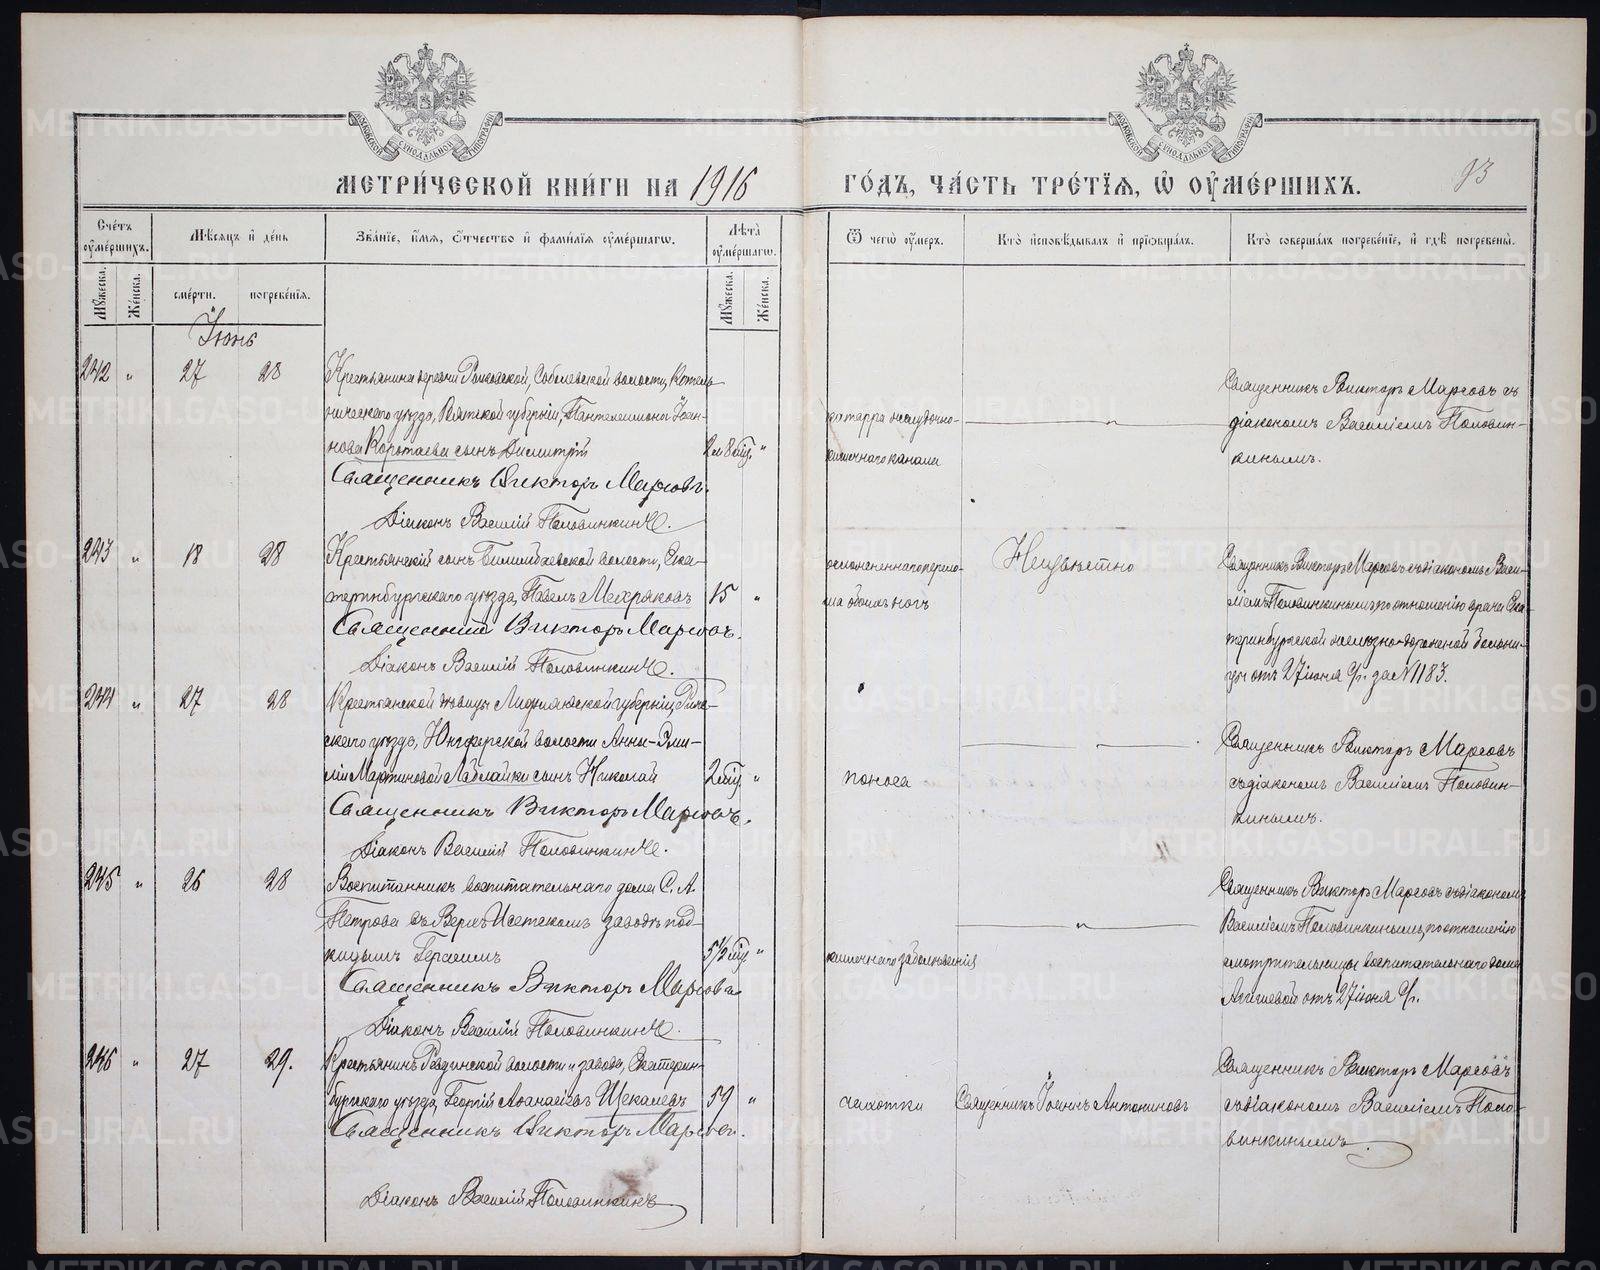 МЕТРИ́ЧЕСКОЙ КНИ́ГИ НА 1916
ГО́ДЪ, ЧА́СТЬ ТРЕ́ТЇѦ, Ѡ҆ ОУ҆МЕ́РШИХЪ.
93
Сче́тъ оу҆ме́ршихъ.
Мѣ́сѧцъ и҆ де́нь
Зва́нїе, и҆́мѧ, ѻ҆́тчество и҆ фами́лїѧ оу҆ме́ршагѡ.
Лѣта̀ оу҆ме́ршагѡ.
Ѿ чегѡ̀ оу҆́меръ.
Кто̀ и҆сповѣ́дывалъ и҆ прїѡбща́лъ.
Кто̀ соверша́лъ погребе́нїе, и҆ гдѣ̀ погребены̀.
Мꙋ́жеска.
Же́нска.
сме́рти.
погребе́нїѧ.
Мꙋ́жеска.
Же́нска.
Іюнь
242 " 27 28
Крестьянина деревни Соболевской волости, Котель-
ническаго уѣзда, Вятской губерніи, Пантелеимона Іоан-
нова Коротаева сынъ Димитрій
2 л 8 мѣц. "
Священникъ Викторъ Марсовъ.
Діаконъ Василій Половинкинъ.
катарра желудочно-
кишечнаго канала
"
Священникъ Викторъ Марсовъ съ
діакономъ Василіемъ Половин-
кинымъ.
243 " 18 28
Крестьянскій сынъ Билимбаевской волости, Ека-
теринбургскаго уѣзда, Павелъ Мехряковъ
15 "
Священникъ Викторъ Марсовъ.
Діаконъ Василій Половинкинъ.
осложненнаго перело-
ма обоихъ ногъ
Неизвѣстно
Священникъ Викторъ Марсовъ съ діакономъ Васи-
ліемъ Половинкинымъ, по отношенію врача Ека-
теринбургской желѣзно-дорожной больни-
цы отъ 27 іюня с/г. за № 1183.
244 " 27 28
Крестьянской дѣвицы Лифляндской губерніи, Риж-
скаго уѣзда, Юнгферской волости Анны-Эми-
ліи Мартиновой Лаблайки сынъ Николай
2 мѣц. "
Священникъ Викторъ Марсовъ.
Діаконъ Василій Половинкинъ.
поноса
"
Священникъ Викторъ Марсовъ
съ діакономъ Василіемъ Половин-
кинымъ.
245 " 26 28
Воспитанникъ воспитательнаго дома С. А.
Петрова въ Верхъ-Исетскомъ заводѣ под-
кидышъ Герасимъ
5 1/2 мѣц "
Священникъ Викторъ Марсовъ
Діаконъ Василій Половинкинъ.
кишечнаго заболѣванія
"
Священникъ Викторъ Марсовъ съ діакономъ
Василіемъ Половинкинымъ, по отношенію
смотрительницы воспитательнаго дома
отъ 27 іюня с/г.
246 " 27 29.
Крестьянинъ Ревдинской волости и завода, Екатерин-
бургскаго уѣзда, Георгій Аѳанасіевъ Щекалевъ
59 "
Священникъ Викторъ Марсовъ.
Діаконъ Василій Половинкинъ
чахотки
Священникъ Іоаннъ Антониновъ
Священникъ Викторъ Марсовъ
съ діакономъ Василіемъ Поло-
винкинымъ.
METRIKI.GASO-URAL.RU